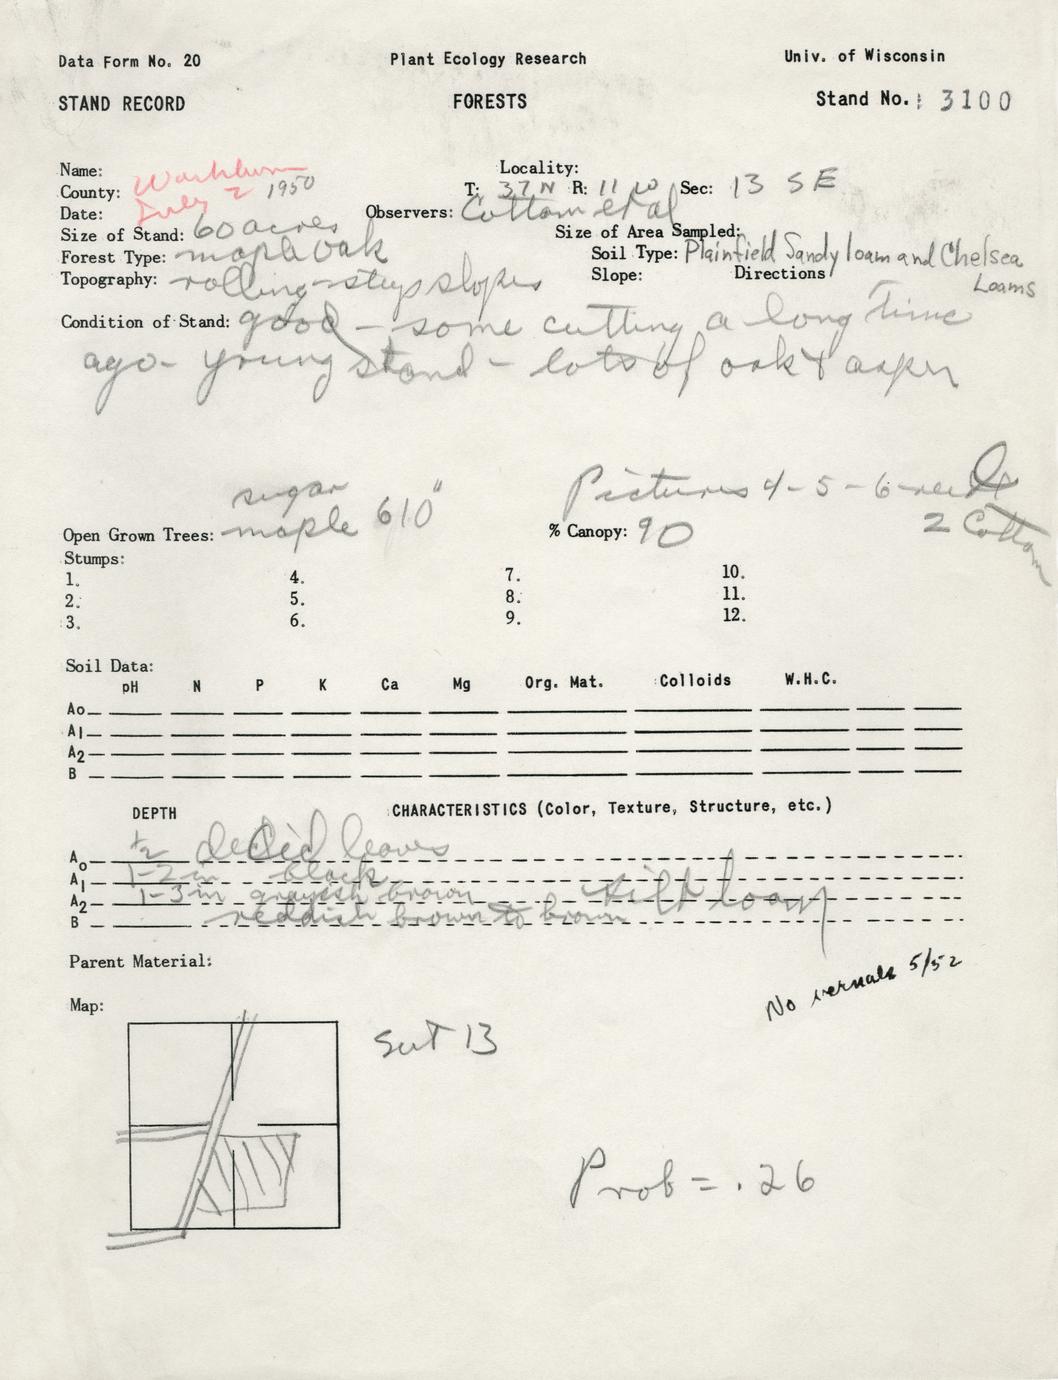 Data Form No. 20 Plant Ecology Research Univ. of Wisconsin
STAND RECORD FORESTS Stand No. 3100
Name: Locality:
County: Washburn T: 37 N R: 11 W Sec: 13 SE
Date: July 2 1950 Observers: Cottam et al
Size of Stand: 60 acres Size of Area Sampled:
Forest Type: maple oak Soil Type: Plainfield Sandy loam and Chelsea Loams
Topography: rolling - steep slopes Slope: Directions
Condition of Stand: good - some cutting a long time
ago - young stand - lots of oak & aspen
sugar Pictures 4-5-6
Open Grown Trees: maple 610" % Canopy: 90 2 Cottam
Stumps:
1. 4. 7. 10.
2. 5. 8. 11.
3. 6. 9. 12.
Soil Data:
pH N P K Ca Mg Org. Mat. Colloids W.H.C.
Ao
A1
A2
B
DEPTH CHARACTERISTICS (Color, Texture, Structure, etc.)
Ao ½ decid leaves
A1 1-2 in black
A2 1-3 in grayish brown silt loam
B reddish brown to brown
Parent Material:
No vernals 5/52
Map:
Sect 13
Prob = .26